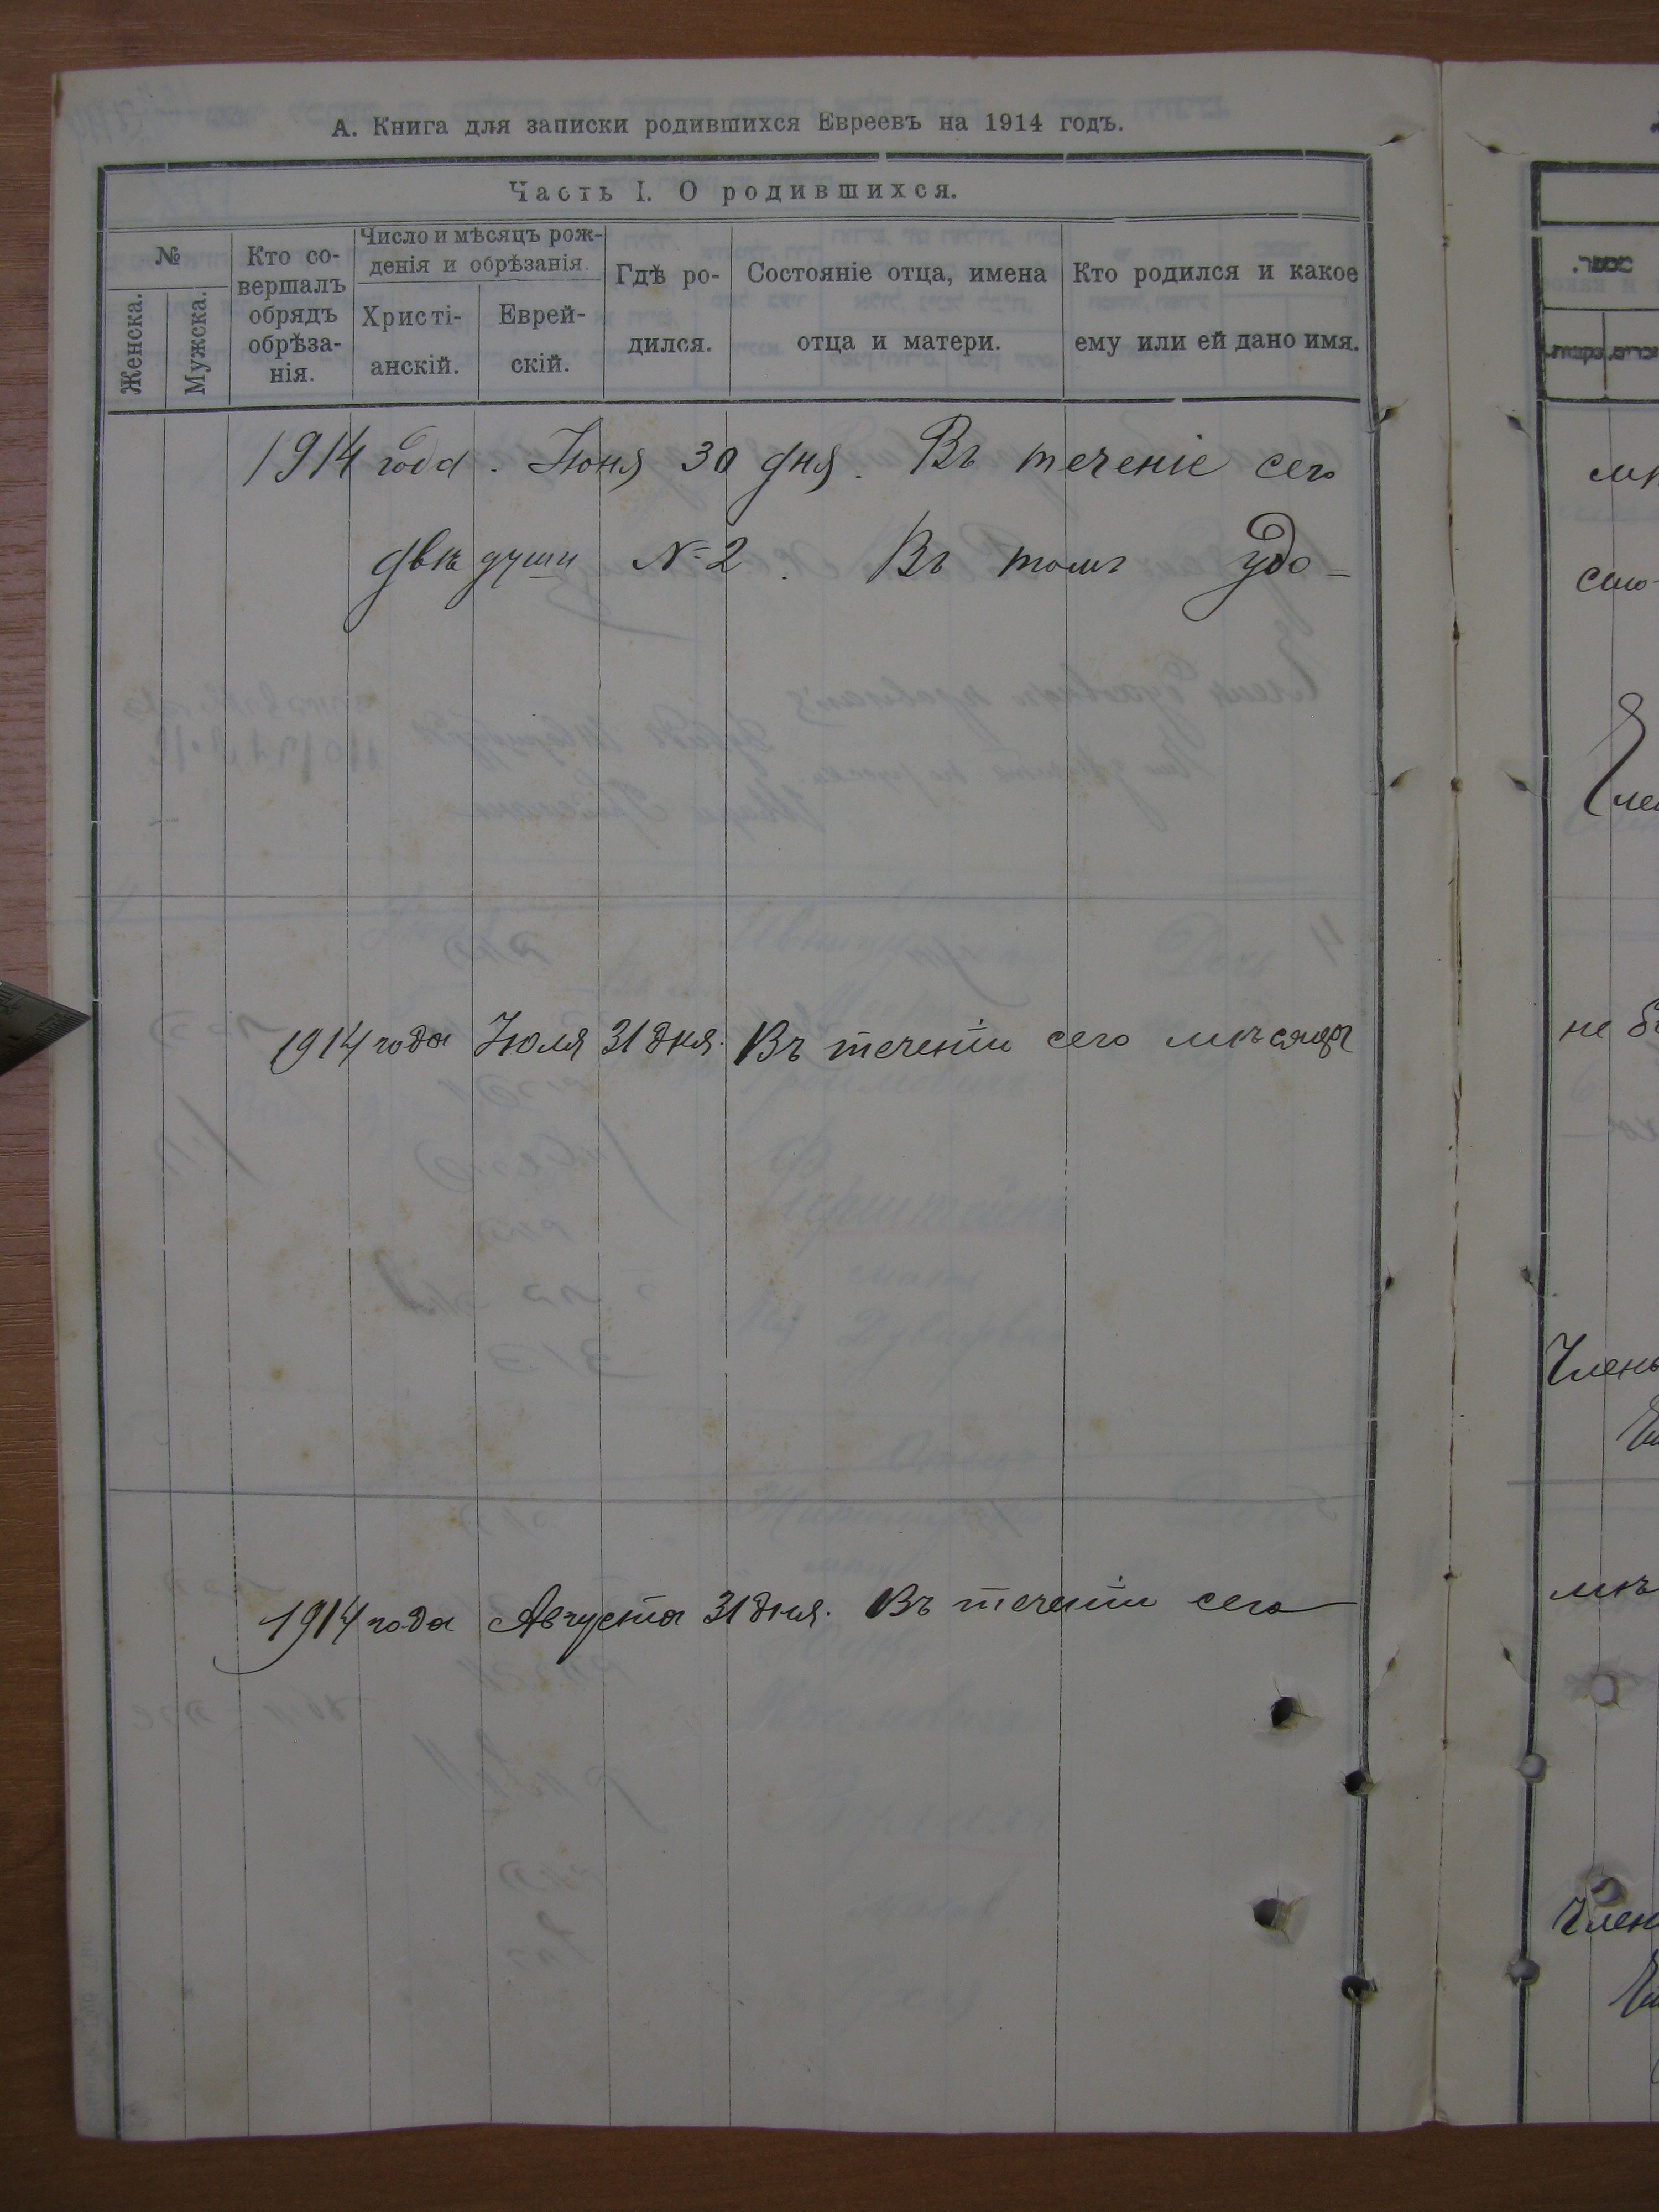 А. Книга для записки родившихся Евреевъ на 1914 годъ.
Часть I. О родившихся.
№
Женска.
Мужска.
Кто со-
вершалъ
обрядъ
обрѣза-
нія.
Число и мѣсяцъ рож-
денія и обрѣзанія.
Христі-
анскій.
Еврей-
скій.
Гдѣ ро-
дился.
Состояніе отца, имена
отца и матери.
Кто родился и какое
ему или ей дано имя.
1914 года. Іюня 30 дня. Въ теченіе сего
двѣ души № 2. Въ томъ удо-
1914 года Іюля 31 дня. Въ теченіи сего мѣсяца
1914 года Августа 31 дня. Въ теченіи сего
не